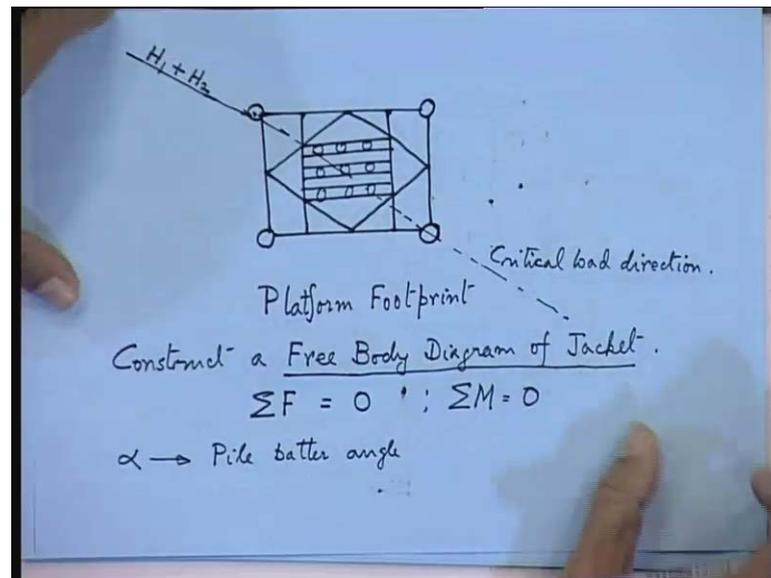 H₁ + H₂
Critical load direction.
Platform Footprint
Construct a Free Body Diagram of Jacket.
ΣF = 0 ; ΣM = 0
α → Pile batter angle